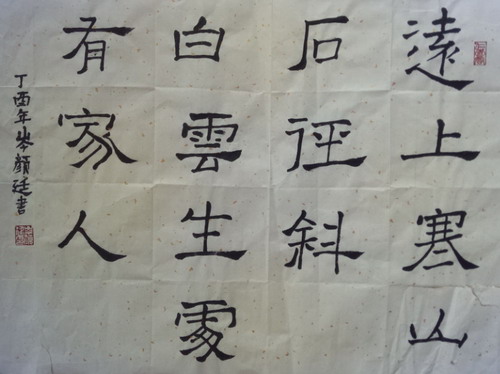 遠上寒山
石徑斜
白雲生處
有家人
丁酉年岑顏廷書